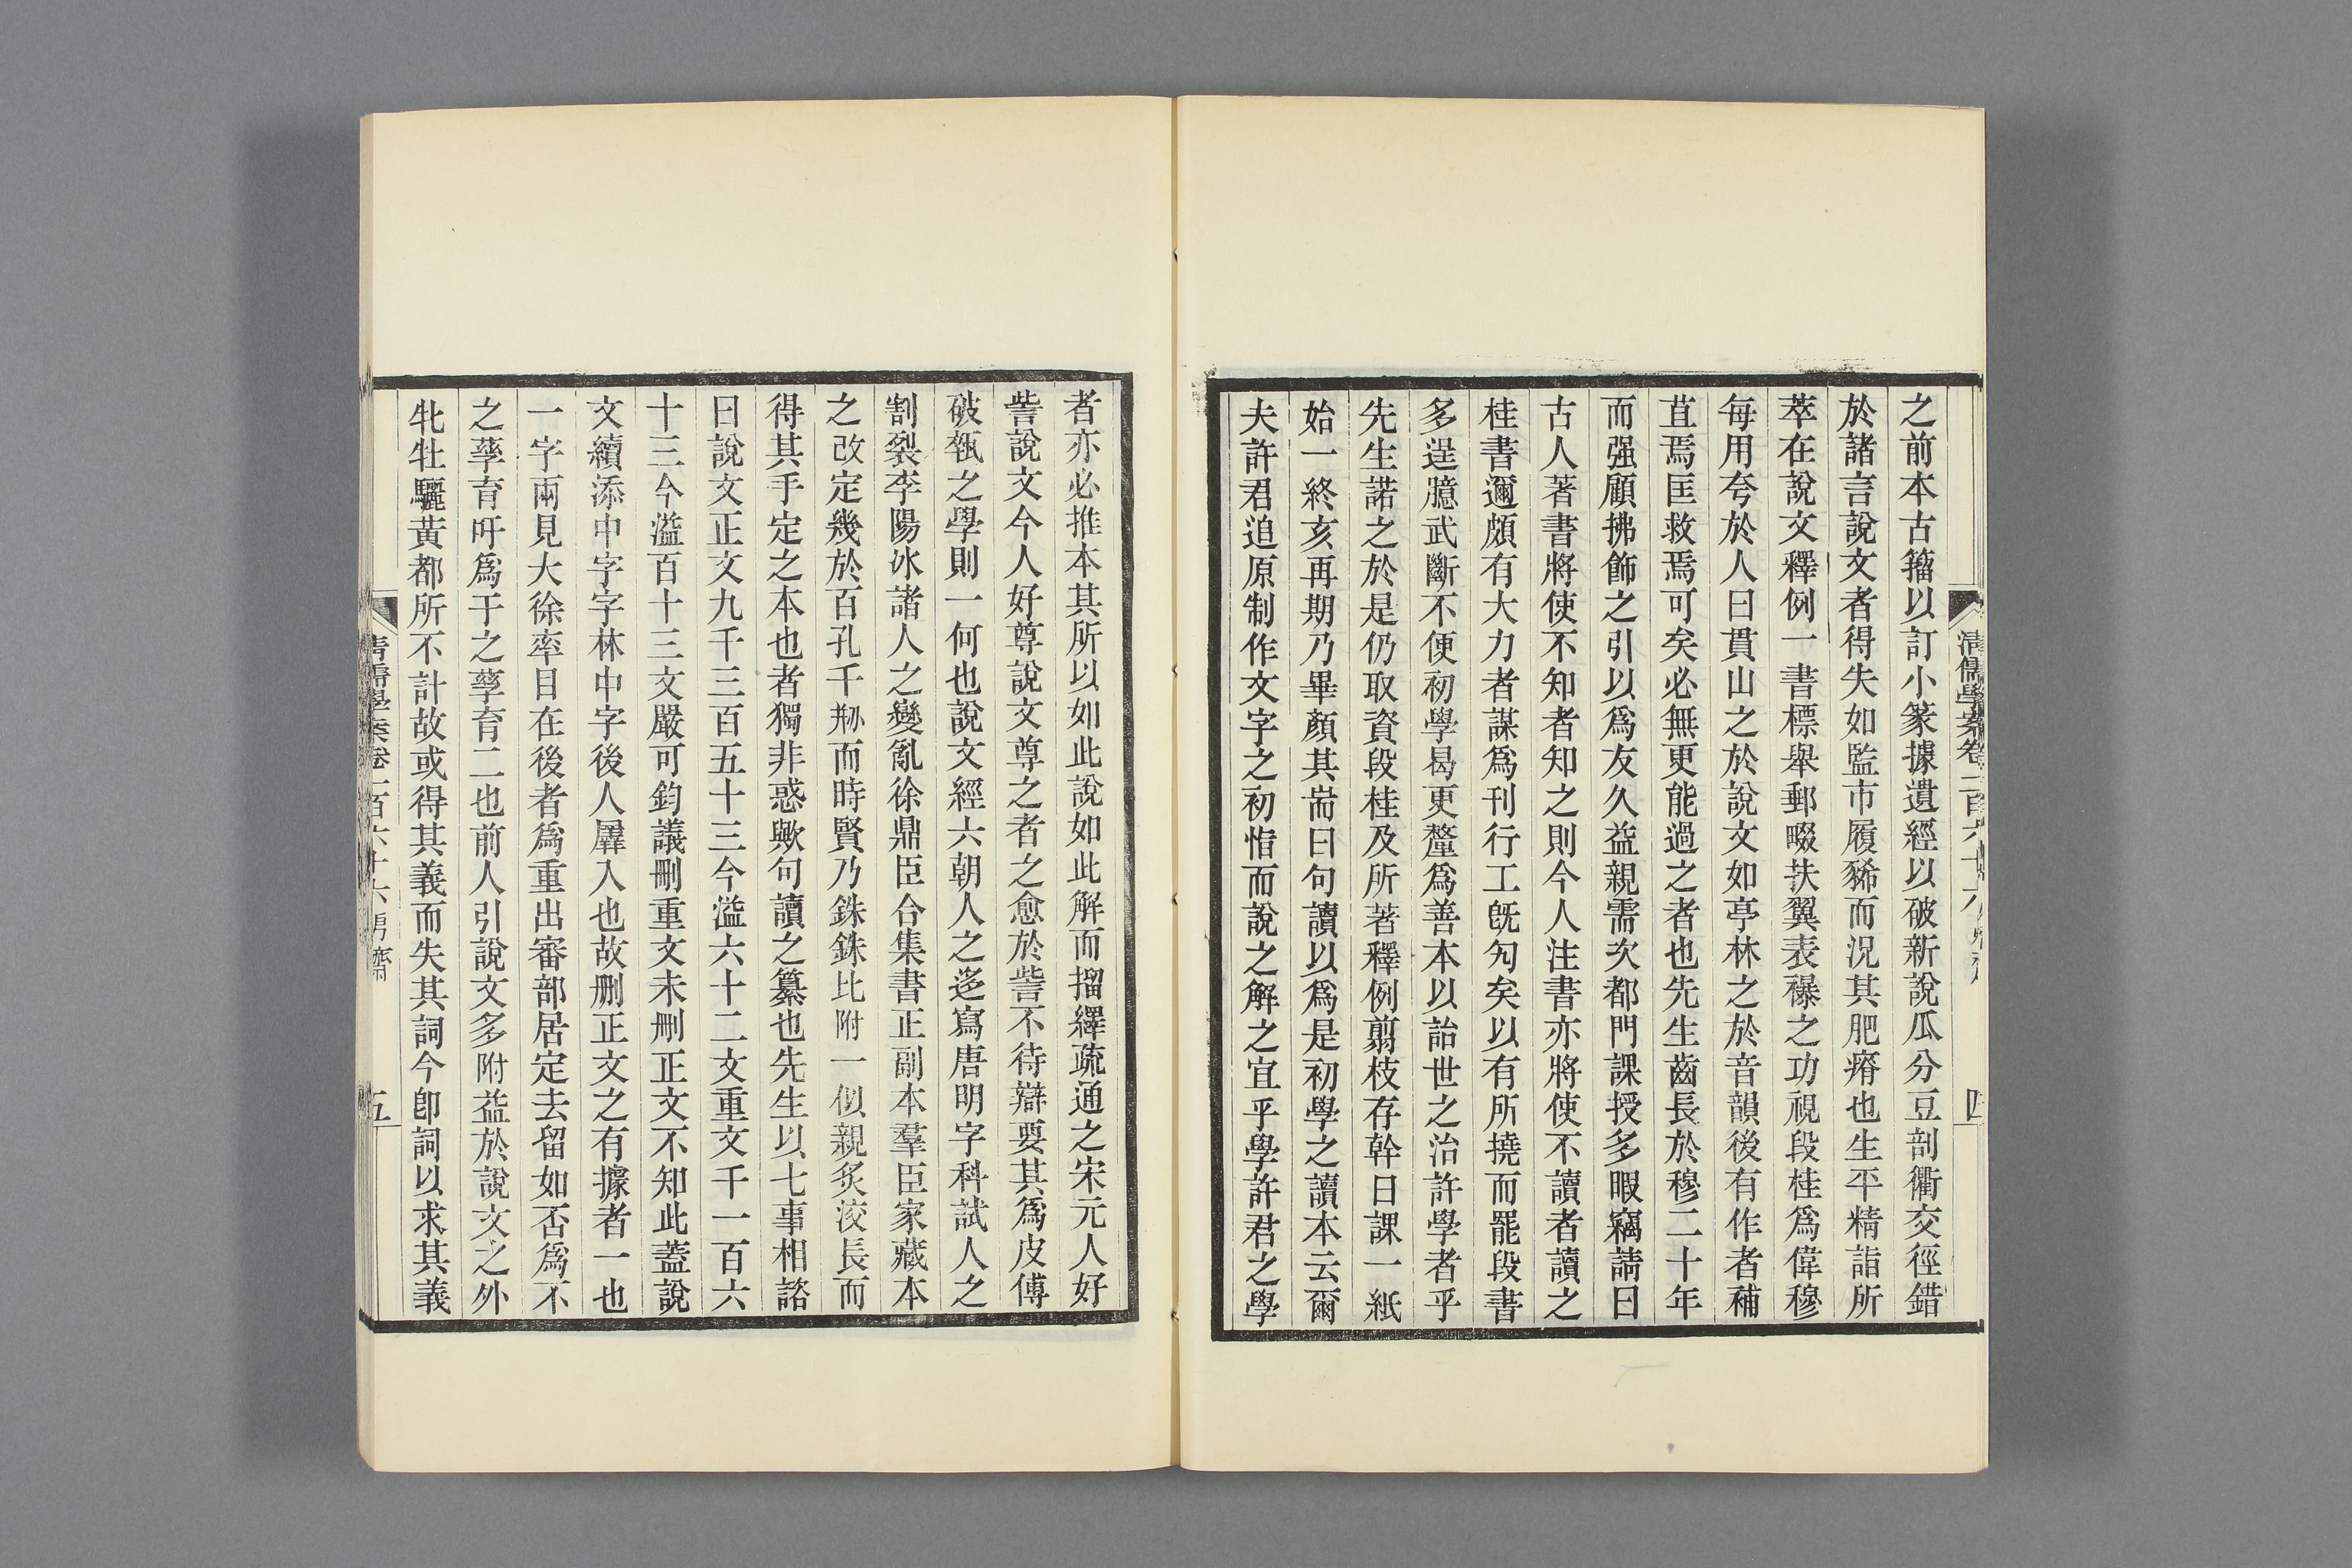 之前本古籀以訂小篆據遺經以破新說瓜分豆剖衢交徑錯
於諸言說文者得失如監市履豨而況其肥瘠也生平精詣所
萃在說文釋例一書標舉郵畷扶翼表襮之功視段桂爲偉穆
每用夸於人曰貫山之於說文如亭林之於音韻後有作者補
苴焉匡救焉可矣必無更能過之者也先生齒長於穆二十年
而强顧拂飾之引以爲友久益親需次都門課授多暇竊請曰
古人著書將使不知者知之則今人注書亦將使不讀者讀之
桂書邇頗有大力者謀爲刊行工旣匄矣以有所撓而罷段書
多逞臆武斷不便初學曷更釐爲善本以詒世之治許學者乎
先生諾之於是仍取資段桂及所著釋例翦枝存幹日課一紙
始一終亥再期乃畢顏其耑曰句讀以爲是初學之讀本云爾
夫許君追原制作文字之初恉而說之解之宜乎學許君之學
清儒學案卷一百六十六
四
者亦必推本其所以如此說如此解而擂繹疏通之宋元人好
訾說文今人好尊說文尊之者之愈於訾不待辯要其爲皮傅
破瓻之學則一何也說文經六朝人之迻寫唐明字科試人之
割裂李陽冰諸人之變亂徐鼎臣合集書正副本羣臣家藏本
之改定幾於百孔千剏而時賢乃銖銖比附一似親炙洨長而
得其手定之本也者獨非惑歟句讀之纂也先生以七事相諮
曰說文正文九千三百五十三今溢六十二文重文千一百六
十三今溢百十三文嚴可鈞議刪重文未刪正文不知此蓋說
文續添中字字林中字後人羼入也故刪正文之有據者一也
一字兩見大徐率目在後者爲重出審部居定去留如否爲不
之孳育吁爲于之孳育二也前人引說文多附益於說文之外
牝牡驪黃都所不計故或得其義而失其詞今卽詞以求其義
清儒學案卷一百六十六
五